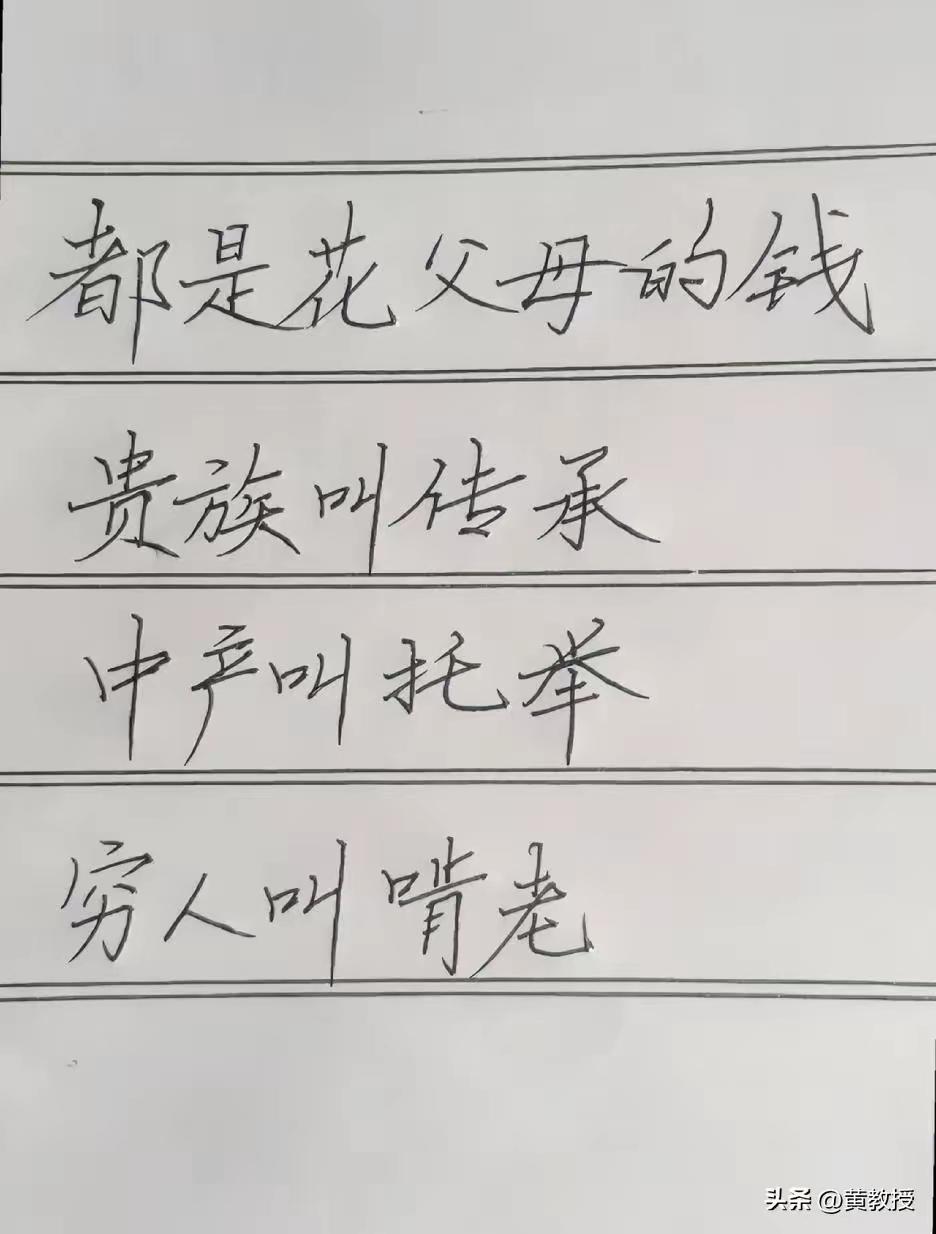 都是花父母的钱
贵族叫传承
中产叫托举
穷人叫啃老
头条 @黄教授